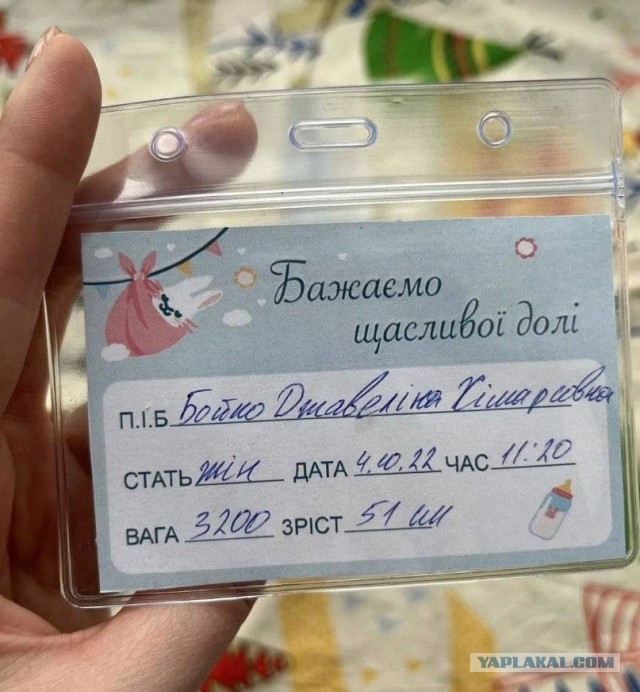 Бажаємо
щасливої долі
П.І.Б Бойко Джавеліна Хімарсовна
СТАТЬ жін ДАТА 4.10.22 ЧАС 11:20
ВАГА 3200 ЗРІСТ 51 см
YAPLAKAL.COM